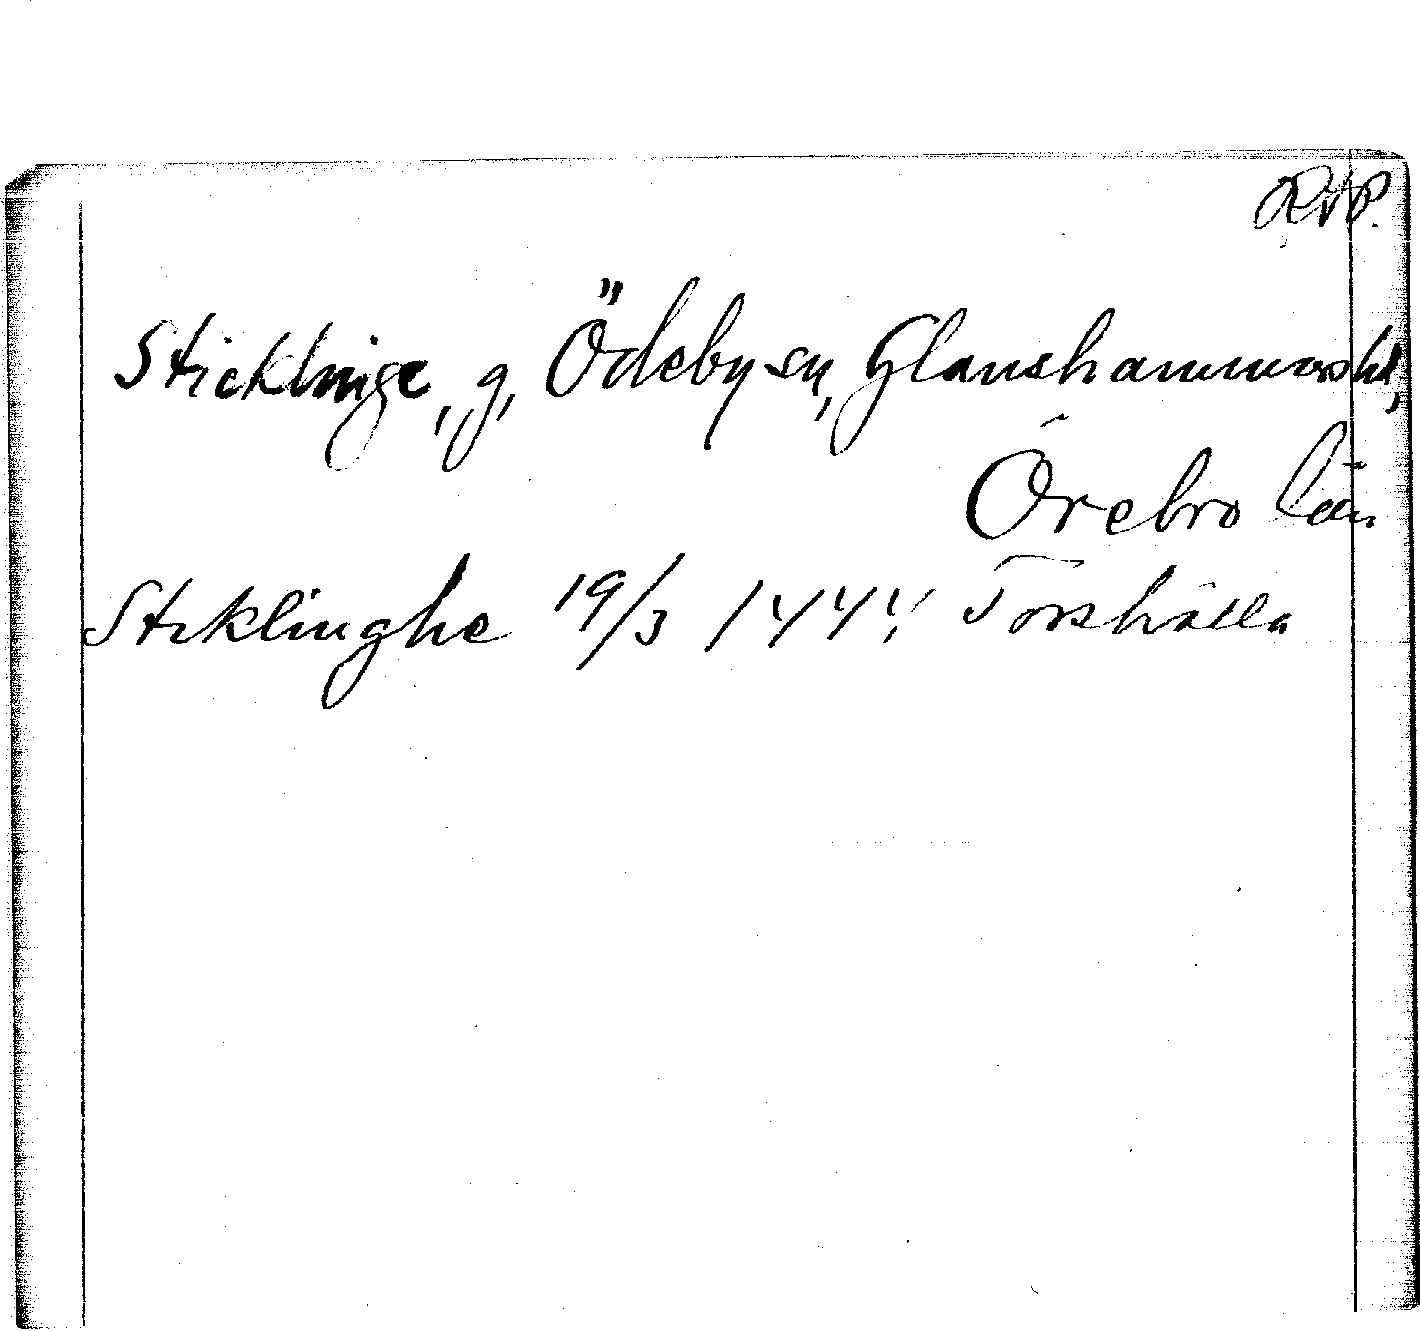 RAP.
Sticklinge, g, Ödeby sn, Glanshammars hd,
Örebro län
Stiklinghe 19/3 1444 Torshälla